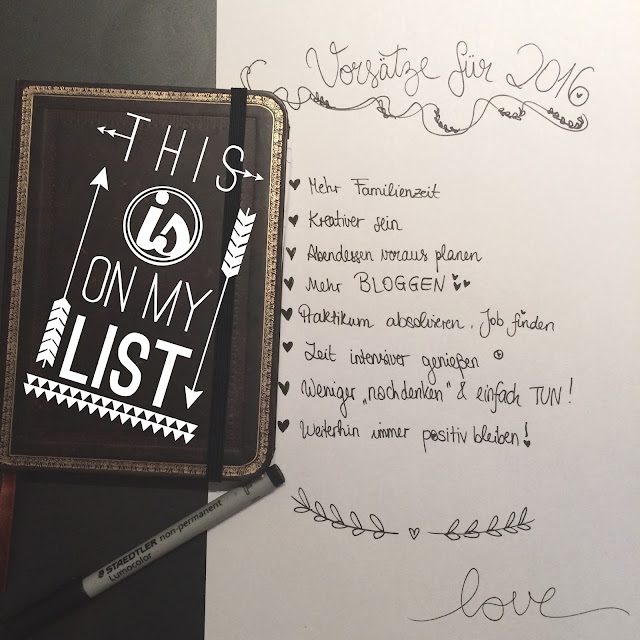 THIS
is
ON MY
LIST
STAEDTLER non-permanent
Lumocolor
Vorsätze für 2016
Mehr Familienzeit
Kreativer sein
Abendessen voraus planen
Mehr BLOGGEN
Praktikum absolvieren, Job finden
Zeit intensiver genießen
Weniger „nachdenken" & einfach TUN!
Weiterhin immer positiv bleiben!
love